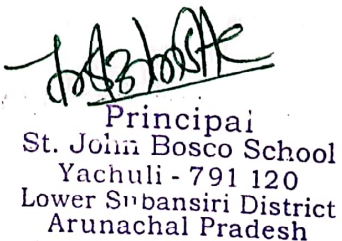 Principal
St. John Bosco School
Yachuli - 791 120
Lower Subansiri District
Arunachal Pradesh